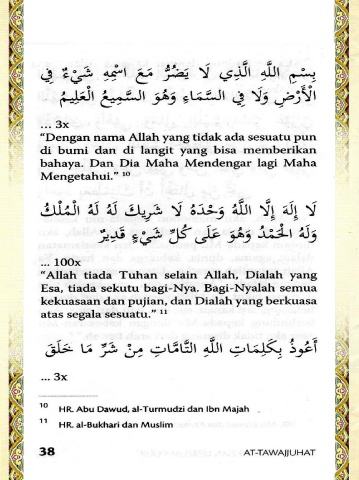 بِسْمِ اللَّهِ الَّذِي لَا يَضُرُّ مَعَ اسْمِهِ شَيْءٌ فِي
الْأَرْضِ وَلَا فِي السَّمَاءِ وَهُوَ السَّمِيعُ الْعَلِيمُ
... 3x
“Dengan nama Allah yang tidak ada sesuatu pun
di bumi dan di langit yang bisa memberikan
bahaya. Dan Dia Maha Mendengar lagi Maha
Mengetahui.” 10
لَا إِلَهَ إِلَّا اللَّهُ وَحْدَهُ لَا شَرِيكَ لَهُ لَهُ الْمُلْكُ
وَلَهُ الْحَمْدُ وَهُوَ عَلَى كُلِّ شَيْءٍ قَدِيرٌ
... 100x
“Allah tiada Tuhan selain Allah, Dialah yang
Esa, tiada sekutu bagi-Nya. Bagi-Nyalah semua
kekuasaan dan pujian, dan Dialah yang berkuasa
atas segala sesuatu.” 11
أَعُوذُ بِكَلِمَاتِ اللَّهِ التَّامَّاتِ مِنْ شَرِّ مَا خَلَقَ
... 3x
10 HR. Abu Dawud, al-Turmudzi dan Ibn Majah
11 HR. al-Bukhari dan Muslim
38 AT-TAWAJJUHAT